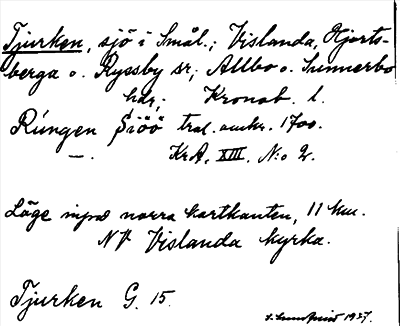 Tjurken, sjö i Smål.; Vislanda, Hjorts-
berga o. Ryssby sr; Allbo o. Sunnerbo
hdr; Kronob. l.
Rúngen Siöö tral. omkr. 1700.
—. KrA, XIII. N:o 2.
Läge invid norra kartkanten, 11 km.
NV Vislanda kyrka.
Tjurken G. 15.
1927.